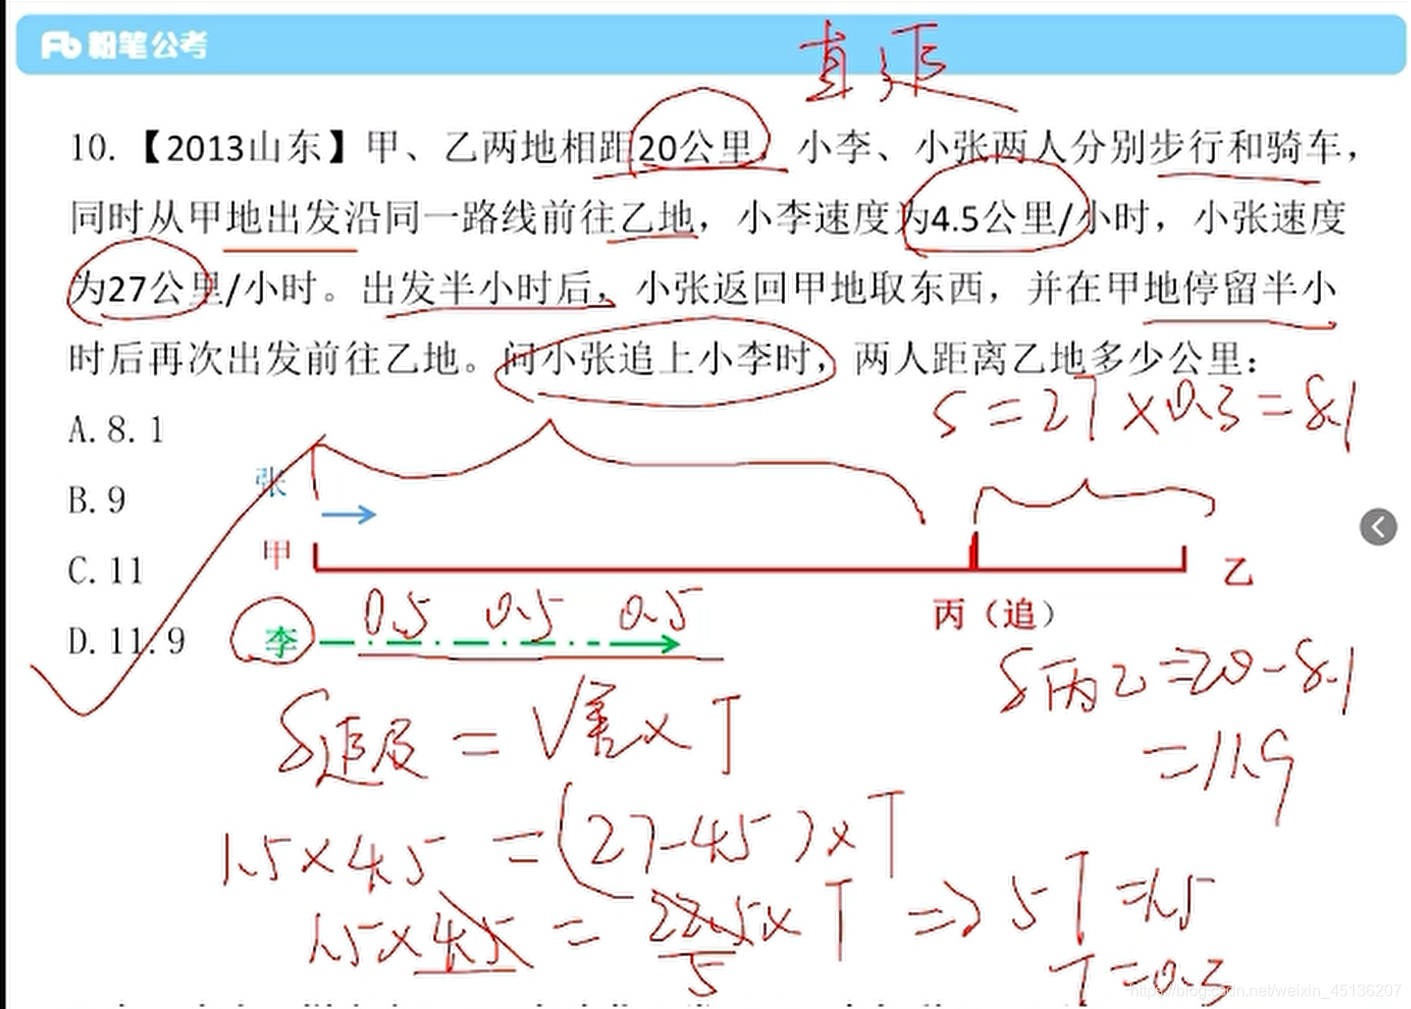 粉笔公考
直 延
10.【2013山东】甲、乙两地相距20公里，小李、小张两人分别步行和骑车，
同时从甲地出发沿同一路线前往乙地，小李速度为4.5公里/小时，小张速度
为27公里/小时。出发半小时后，小张返回甲地取东西，并在甲地停留半小
时后再次出发前往乙地。问小张追上小李时，两人距离乙地多少公里：
S=27×0.3=8.1
A.8.1
B.9
C.11
D.11.9
张
甲
乙
丙（追）
李
0.5 0.5 0.5
S丙乙=20-8.1
=11.9
S追及=V差×T
1.5×4.5=(27-4.5)×T
1.5×4.5=22.5×T => 5T=1.5
5
T=0.3
https://blog.csdn.net/weixin_45136207